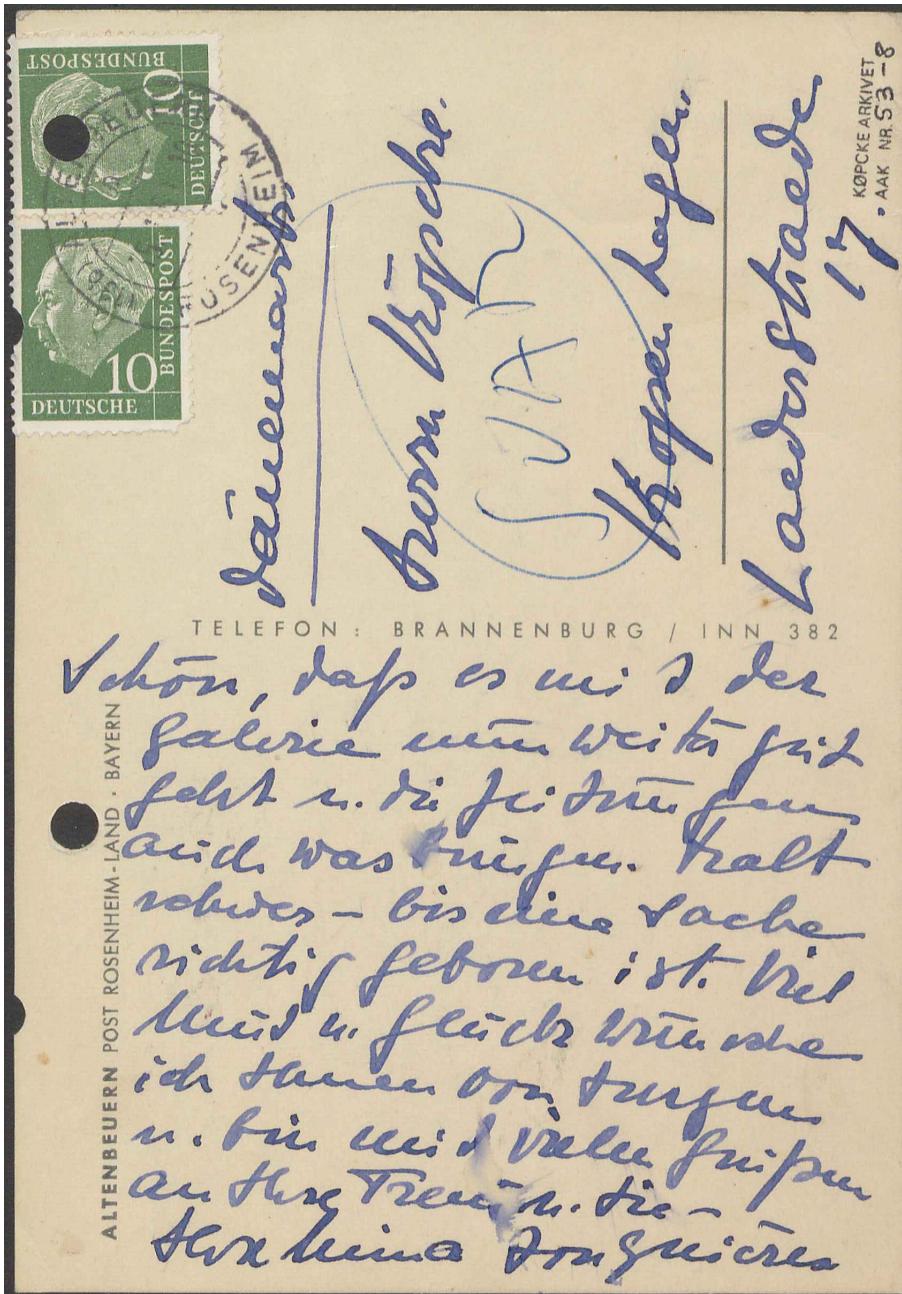 DEUTSCHE
BUNDESPOST
10
DEUTSCHE
BUNDESPOST
10
KØPCKE ARKIVET
AAK NR. 53-8
Dänemark
Herrn Köpcke.
SVAR
Kopenhagen
Laederstraede
17.
TELEFON: BRANNENBURG / INN 382
ALTENBEUERN POST ROSENHEIM-LAND · BAYERN
Schön, daß es mit der
Galerie nun weiter gut
geht u. die Zeitungen
auch was bringen. Halt
schwer – bis eine Sache
richtig geboren ist. Viel
Mut u. Glück wünsche
ich Ihnen von Herzen
u. bin mit vielen Grüßen
an Ihre Frau u. Sie –
Ihre Mima